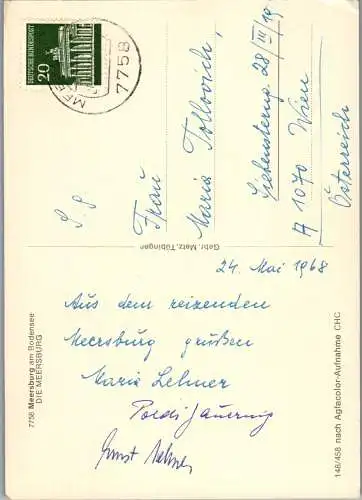 DEUTSCHE BUNDESPOST
20
7758
S. g.
Frau
Maria
Siebensterng. 28/III/19
A 1070 Wien
Österreich
Gebr. Metz, Tübingen
24. Mai 1968
Aus dem reizenden
Meersburg grüßen
Maria Lehner
Poldi
Ernst Lehner
7758 Meersburg am Bodensee
DIE MEERSBURG
148/458 nach Agfacolor-Aufnahme CHC